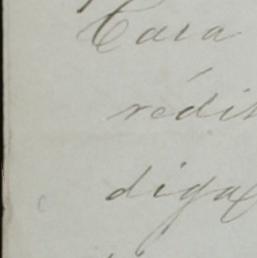 Cara
rédit
diga